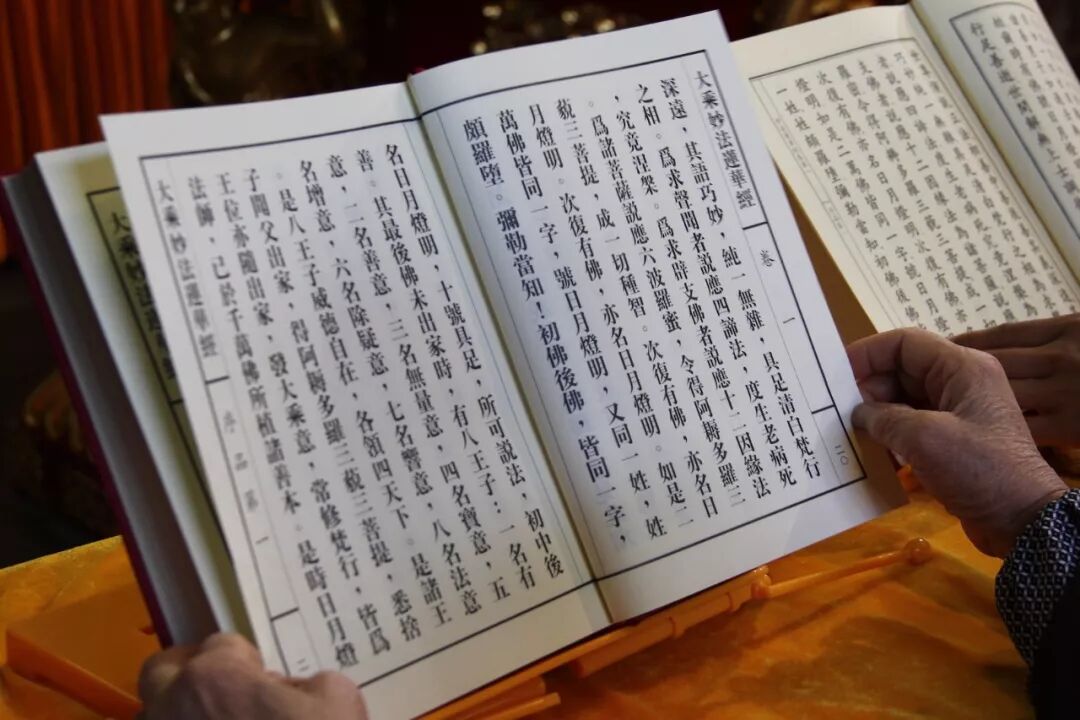 大乘妙法蓮華經 卷 一 二〇
深遠，其語巧妙，純一無雜，具足清白梵行
之相。爲求聲聞者說應四諦法，度生老病死
，究竟涅槃。爲求辟支佛者說應十二因緣法
。爲諸菩薩說應六波羅蜜，令得阿耨多羅三
藐三菩提，成一切種智。次復有佛，亦名日
月燈明。次復有佛，亦名日月燈明。如是二
萬佛皆同一字，號日月燈明，又同一姓，姓
頗羅墮。彌勒當知！初佛後佛，皆同一字，
名日月燈明，十號具足，所可說法，初中後
善。其最後佛未出家時，有八王子：一名有
意，二名善意，三名無量意，四名寶意，五
名增意，六名除疑意，七名響意，八名法意
。是八王子威德自在，各領四天下。是諸王
子聞父出家，得阿耨多羅三藐三菩提，悉捨
王位亦隨出家，發大乘意，常修梵行，皆爲
法師，已於千萬佛所植諸善本。是時日月燈
大乘妙法蓮華經 序品第一 二
大乘妙法蓮華經
行足善逝世間解無上士調
燈明如是二萬佛皆同一字號日月燈
一姓姓頗羅墮彌勒當知初佛後